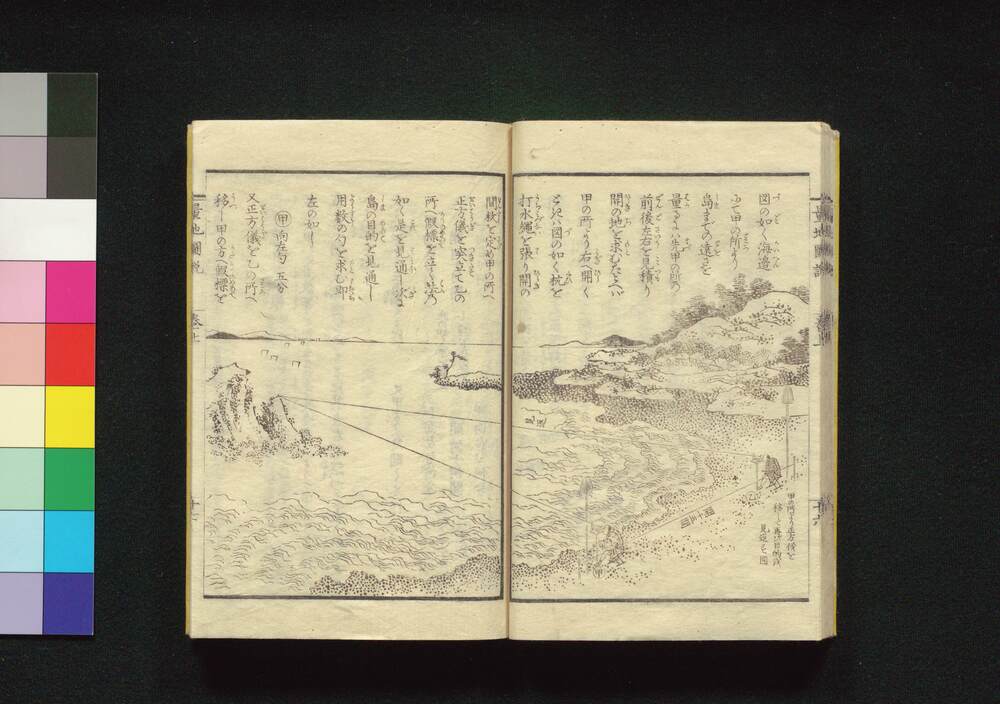 図の如く海邉
にて甲の所より
島までの遠さを
量るにハ先甲の所の
前後左右を見積り
開の地を求むたとへバ
甲の所より右へ開く
ときハ図の如く杭を
打水縄を張り開の
間数を定め甲の所へ
正方儀を突立て乙の
所へ假標を立さセ其の
如く是を見通し次に
島の目的を見通し
用数の勺を求む即
左の如し
甲 向左勺 五分
又正方儀を乙の所へ
移し甲の方の假標を
見通
四十三間
甲の所より正方儀を
移して再び目的を
見返す図
量地圖説